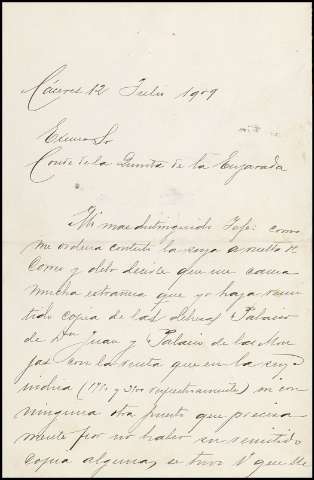 Cáceres 12 Julio 1909
Excmo Sr
Conde de la Quinta de la Enjarada
Mi mas distinguido Jefe: como
me ordena contesto la suya a vuelta de
Correo y debo decirle que me causa
mucha extrañeza que yo haya
copia de las dehesas Palacio
de Dn Juan y Palacio de las Mon
jas con la renta que en la suya
indica (170 y respectivamente) ni con
ninguna otra puesto que precisa
mente por no haber en remitido
copia alguna, se tuvo V que